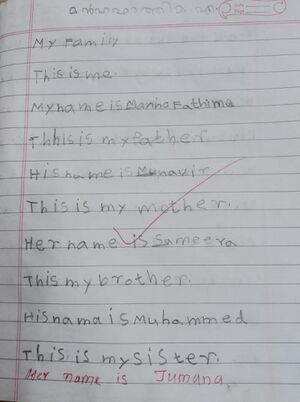 My Family
This is me.
My name is Manha Fathima
Thhis is my father
His name is Munavir
This is my mother.
Her name is Sameera
This my brother.
His nama is Muhammed
This is my sister.
Her name is Jumana.